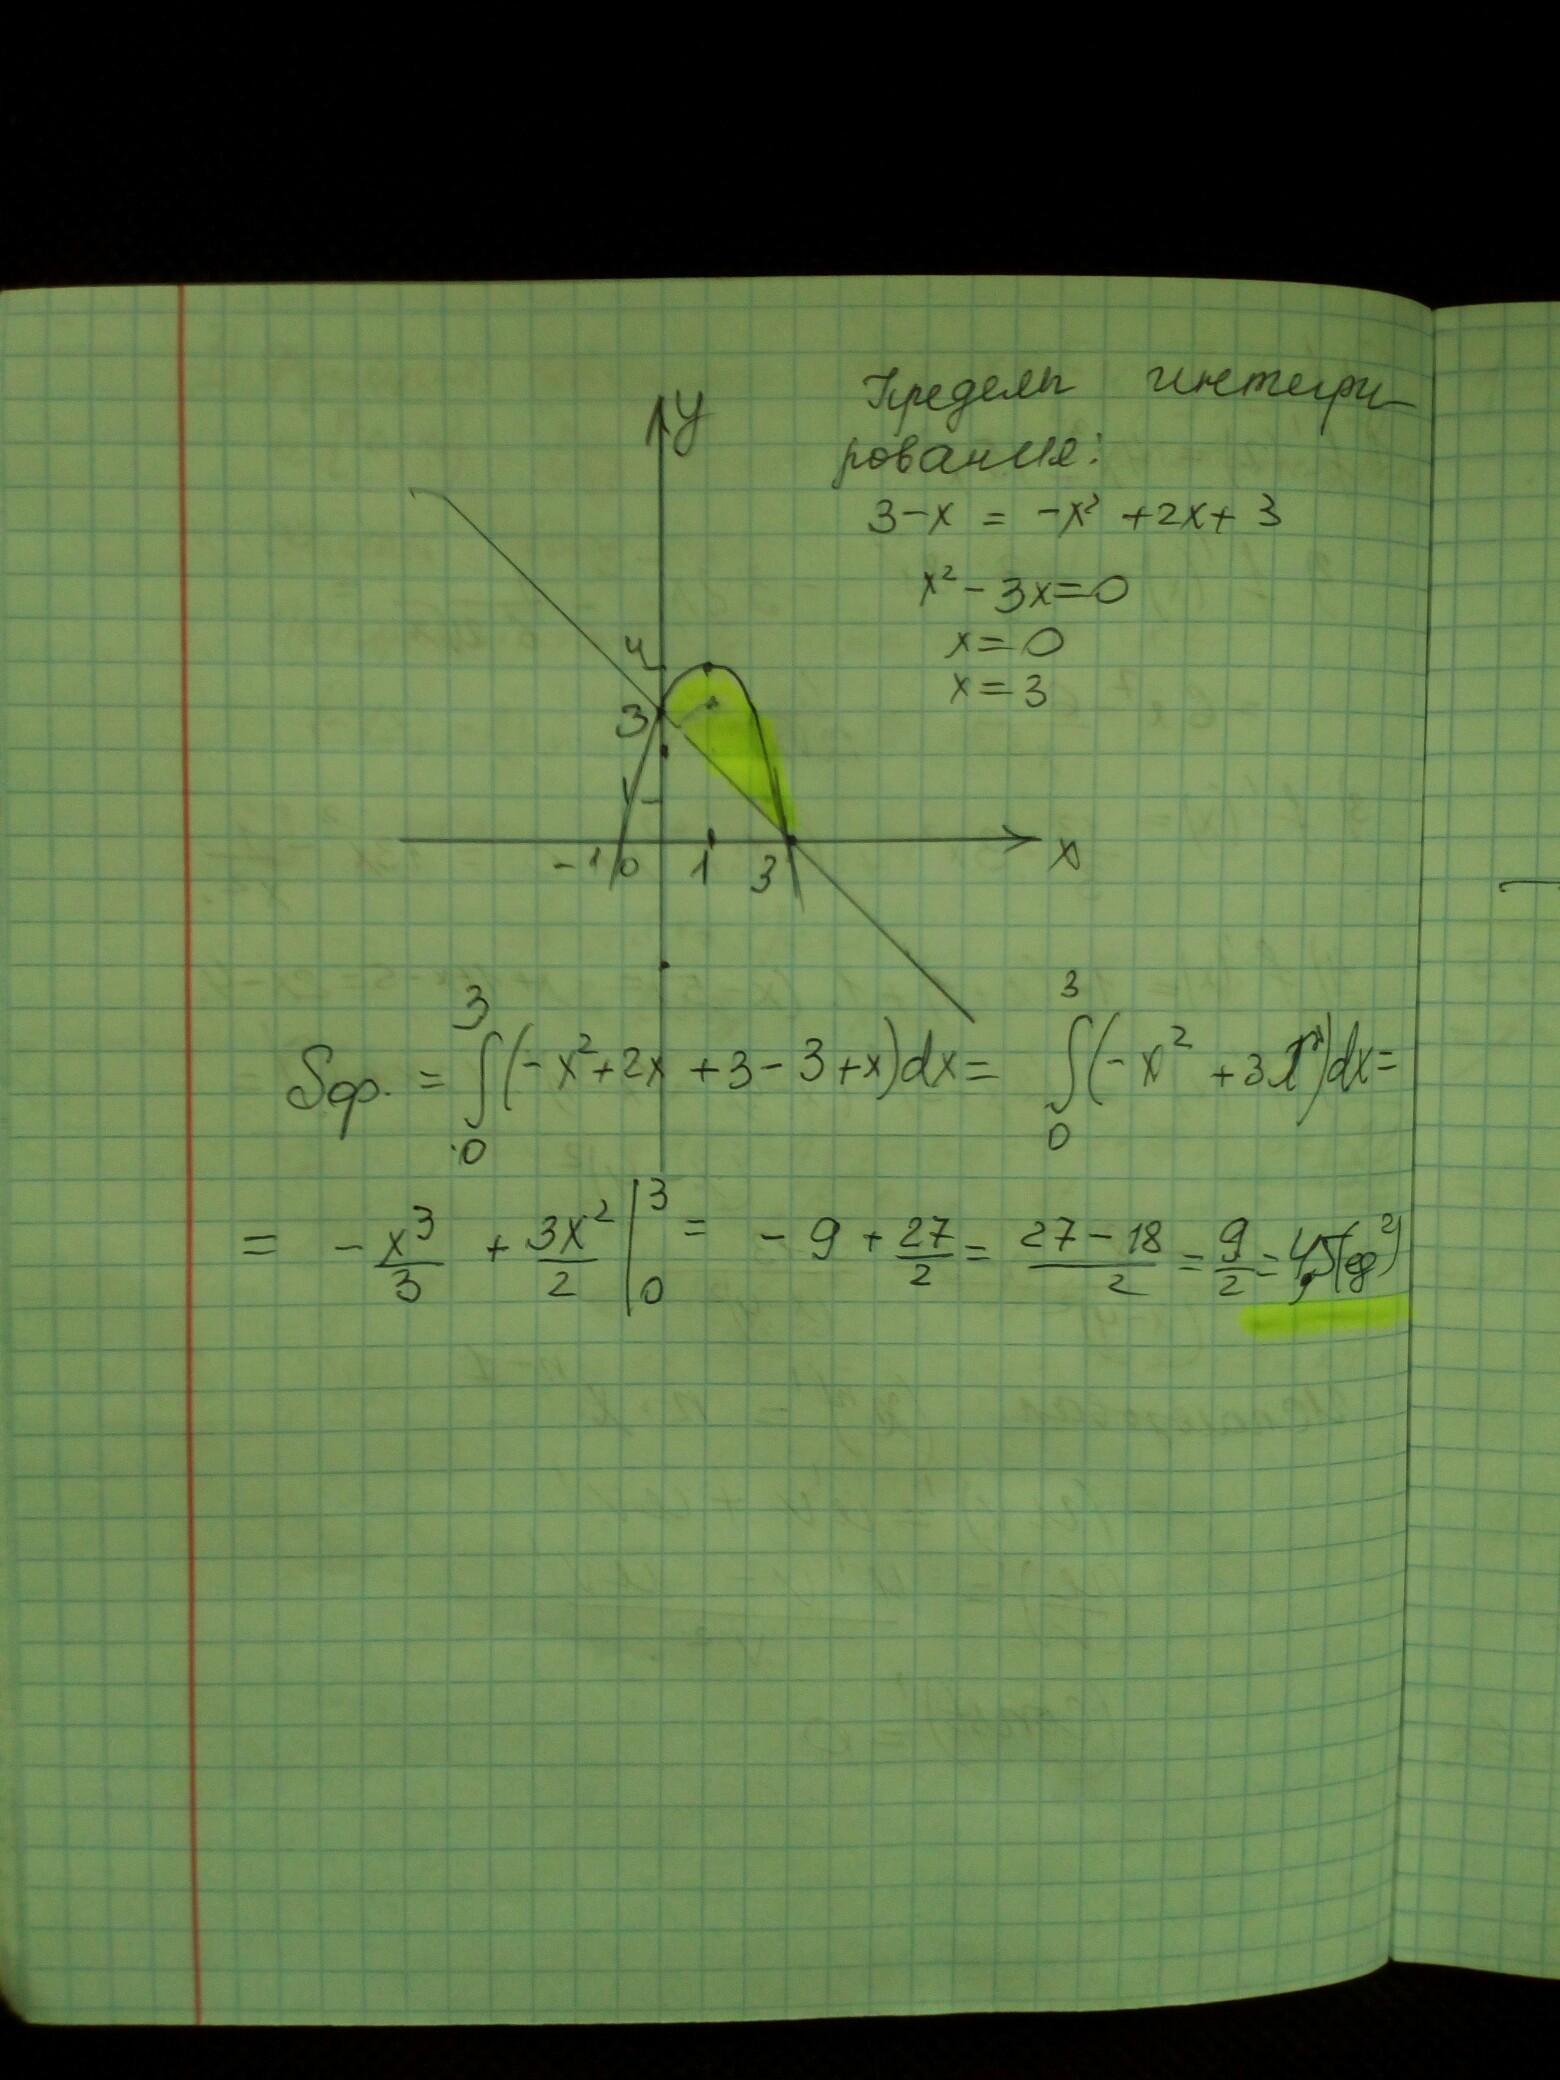 y
Пределы интегри
рования:
3-x = -x² +2x+ 3
x² - 3x=0
x=0
x=3
4
3
1
-1 0 1 3 x
Sф. = ∫₀³(-x²+2x +3-3+x)dx= ∫₀³(-x² +3x)dx=
= -x³/3 + 3x²/2 |₀³ = -9 + 27/2 = (27-18)/2 = 9/2 = 4,5(ед²)